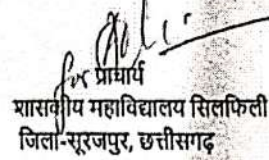 for प्राचार्य
शासकीय महाविद्यालय सिलफिली
जिला-सूरजपुर, छत्तीसगढ़